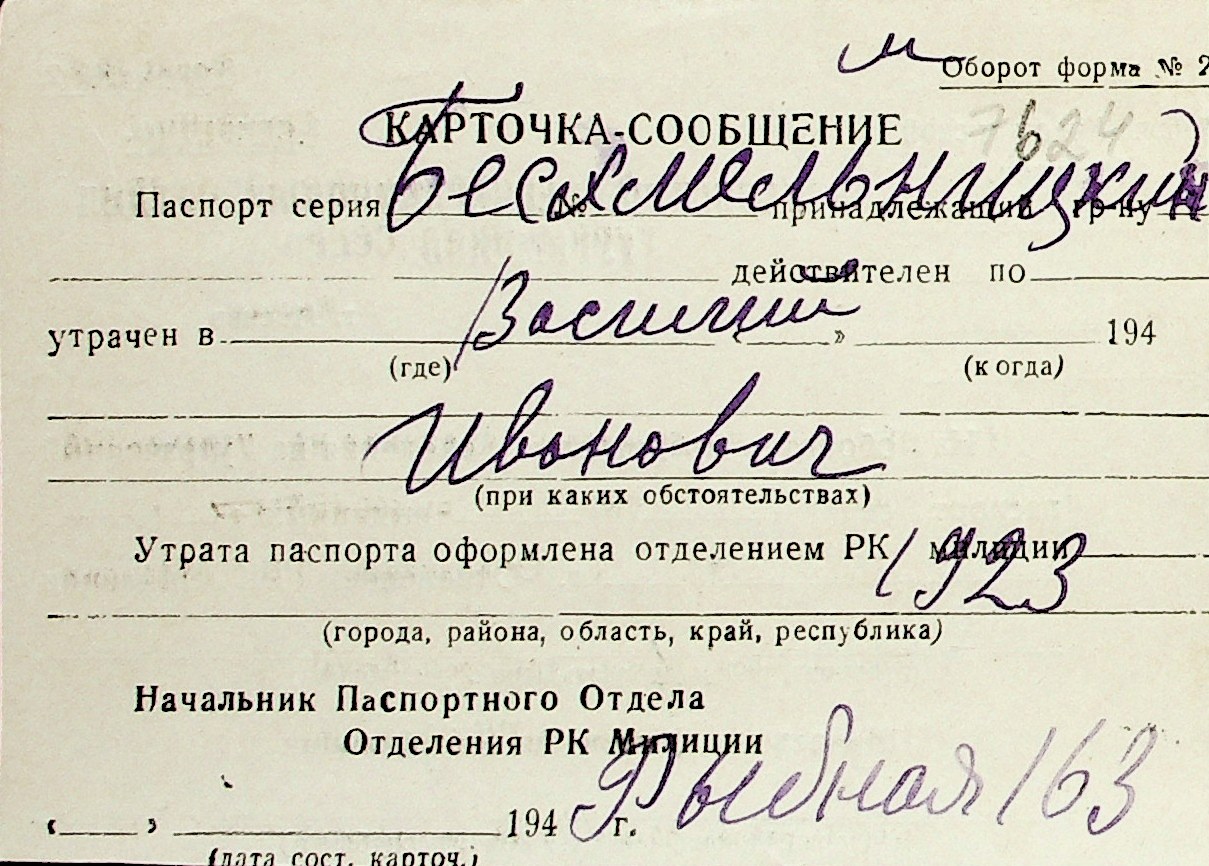 м
Оборот форма № 2
КАРТОЧКА-СООБЩЕНИЕ
7624
Бесхмельницкий
Паспорт серия № принадлежащий гр-ну
действителен по
Василий
утрачен в « » 194
(где) (когда)
Иванович
(при каких обстоятельствах)
Утрата паспорта оформлена отделением РК милиции
1923
(города, района, область, край, республика)
Начальник Паспортного Отдела
Отделения РК Милиции
Рыбная 163
« » 194 г.
(дата сост. карточ.)